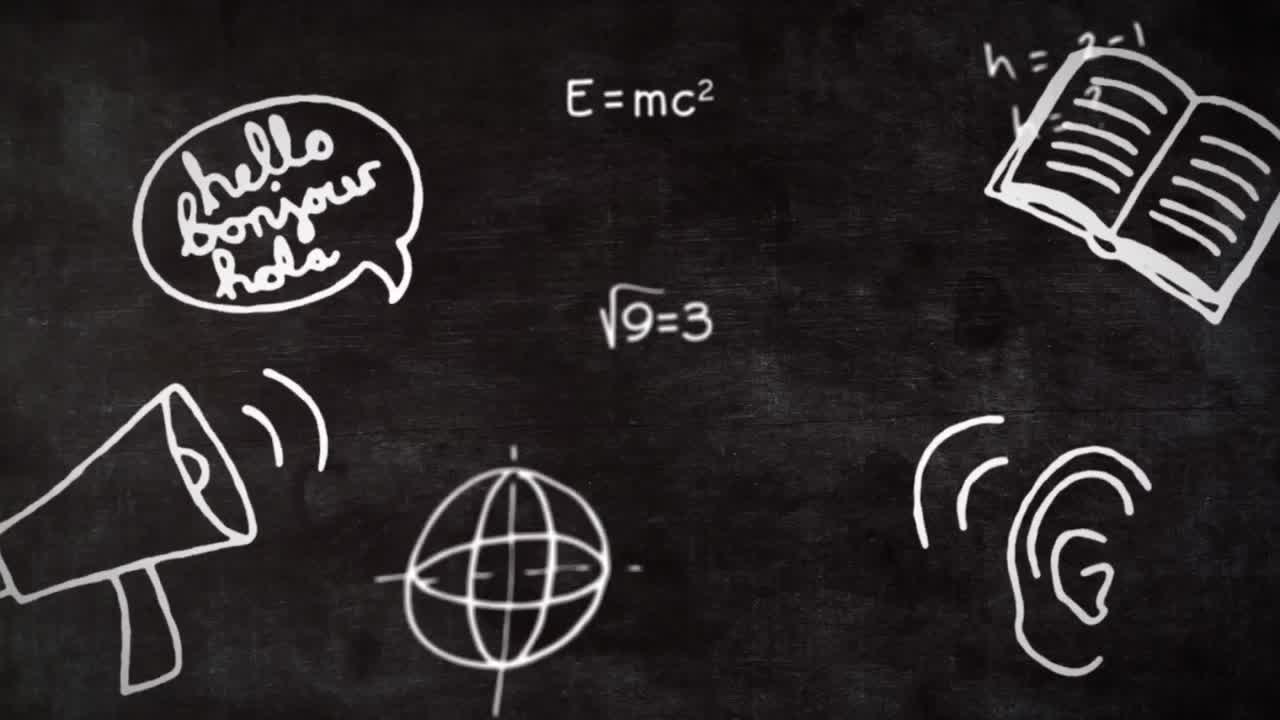 hello
bonjour
hola
E=mc²
√9=3
h = 2-1
h=